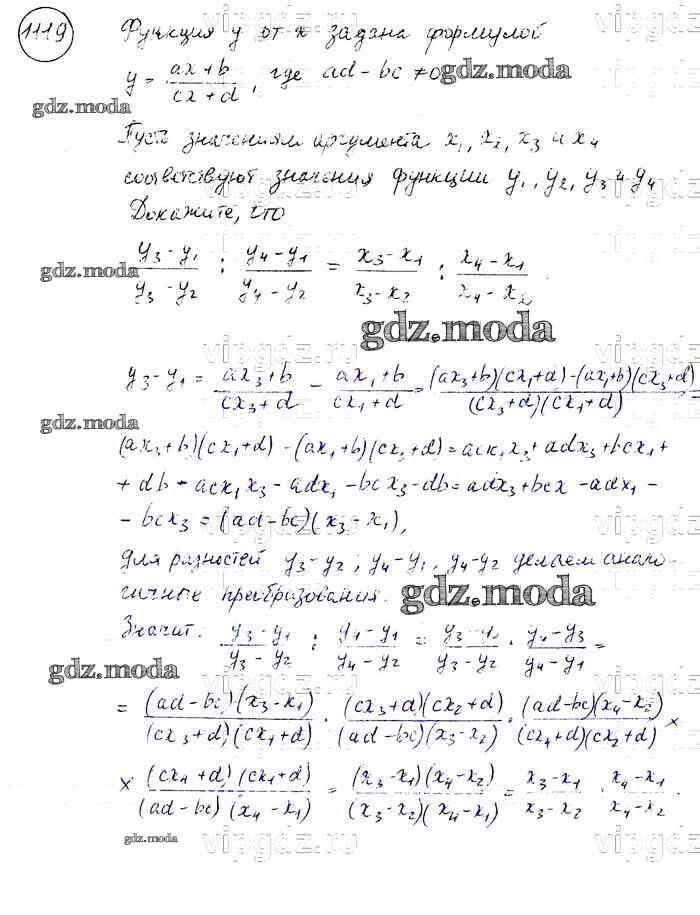 1119 Функция y от x задана формулой
y = (ax+b)/(cx+d), где ad-bc ≠0
gdz.moda
gdz.moda
Пусть значениям аргумента x₁, x₂, x₃ и x₄
соответствуют значения функции y₁, y₂, y₃ и y₄
Докажите, что
(y₃-y₁)/(y₃-y₂) : (y₄-y₁)/(y₄-y₂) = (x₃-x₁)/(x₃-x₂) : (x₄-x₁)/(x₄-x₂).
gdz.moda
gdz.moda
y₃-y₁ = (ax₃+b)/(cx₃+d) - (ax₁+b)/(cx₁+d) = ((ax₃+b)(cx₁+d)-(ax₁+b)(cx₃+d))/((cx₃+d)(cx₁+d))
gdz.moda
(ax₃+b)(cx₁+d) - (ax₁+b)(cx₃+d) = acx₁x₃ + adx₃ + bcx₁ +
+ db - acx₁x₃ - adx₁ - bcx₃ - db = adx₃ + bcx - adx₁ -
- bcx₃ = (ad-bc)(x₃-x₁),
для разностей y₃-y₂; y₄-y₁, y₄-y₂ делаем анало-
гичные преобразования.
gdz.moda
Значит: (y₃-y₁)/(y₃-y₂) : (y₄-y₁)/(y₄-y₂) = (y₃-y₁)/(y₃-y₂) · (y₄-y₃)/(y₄-y₁) =
gdz.moda
= (ad-bc)(x₃-x₁)/((cx₃+d)(cx₁+d)) · (cx₃+d)(cx₂+d)/((ad-bc)(x₃-x₂)) · (ad-bc)(x₄-x₂)/((cx₄+d)(cx₂+d)) ×
× (cx₄+d)(cx₁+d)/((ad-bc)(x₄-x₁)) = (x₃-x₁)(x₄-x₂)/((x₃-x₂)(x₄-x₁)) = (x₃-x₁)/(x₃-x₂) : (x₄-x₁)/(x₄-x₂).
gdz.moda
vipgdz